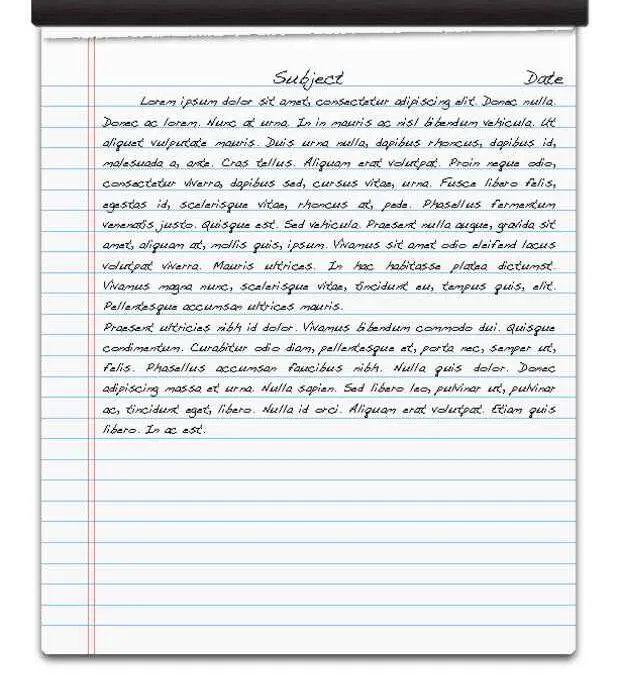 Subject Date
Lorem ipsum dolor sit amet, consectetur adipiscing elit. Donec nulla.
Donec ac lorem. Nunc at urna. In in mauris ac nisl bibendum vehicula. Ut
aliquet vulputate mauris. Duis urna nulla, dapibus rhoncus, dapibus id,
malesuada a, ante. Cras tellus. Aliquam erat volutpat. Proin neque odio,
consectetur viverra, dapibus sed, cursus vitae, urna. Fusce libero felis,
egestas id, scelerisque vitae, rhoncus at, pede. Phasellus fermentum
venenatis justo. Quisque est. Sed vehicula. Praesent nulla augue, gravida sit
amet, aliquam at, mollis quis, ipsum. Vivamus sit amet odio eleifend lacus
volutpat viverra. Mauris ultrices. In hac habitasse platea dictumst.
Vivamus magna nunc, scelerisque vitae, tincidunt eu, tempus quis, elit.
Pellentesque accumsan ultrices mauris.
Praesent ultricies nibh id dolor. Vivamus bibendum commodo dui. Quisque
condimentum. Curabitur odio diam, pellentesque et, porta nec, semper ut,
felis. Phasellus accumsan faucibus nibh. Nulla quis dolor. Donec
adipiscing massa et urna. Nulla sapien. Sed libero leo, pulvinar ut, pulvinar
ac, tincidunt eget, libero. Nulla id orci. Aliquam erat volutpat. Etiam quis
libero. In ac est.